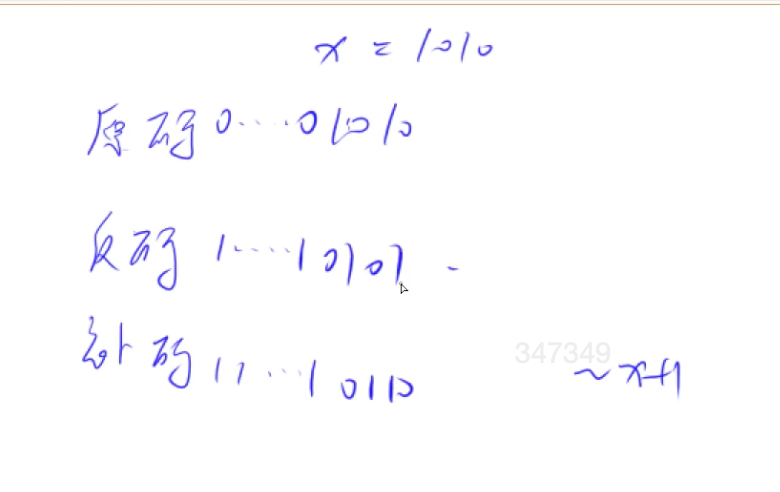 x = 1010
原码 0....01010
反码 1....10101 -
补码 11...10110
347349
~x+1